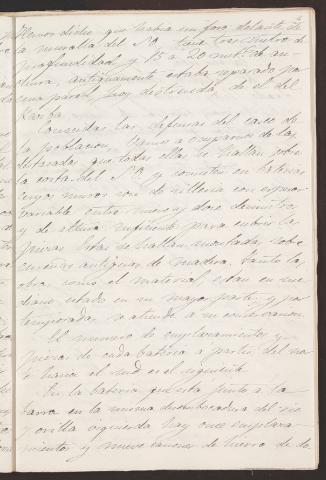 Hemos dicho, que habia un foso delante de
la muralla del S.O. tiene tres metros de
profundidad y 15 a 20 met.s de an-
chura, antiguamente estaba separado por
una pared, hoy destruida, de el del
Kasba.
Conocidas las defensas del casco de
la poblacion, vamos a ocuparnos de las
destacadas, que todas ellas se hallan sobre
la costa del S.O y consisten en baterias
cuyos muros son de silleria con espesor
variable entre nueve y doce decimetros
y de altura suficiente para cubrir las
piezas. Estas se hallan montadas sobre
cureñas antiguas de madera. Tanto la
obra como el material, estan en me-
diano estado en su mayor parte, y por
temporadas se atiende a su conservacion.
El numero de emplazamientos y
piezas de cada bateria a partir del nor-
te hacia el sud es el siguiente.
En la bateria que esta junto a la
barra en la misma desembocadura del rio
orilla izquierda hay once emplaza-
mientos y nueve cañones de hierro de do